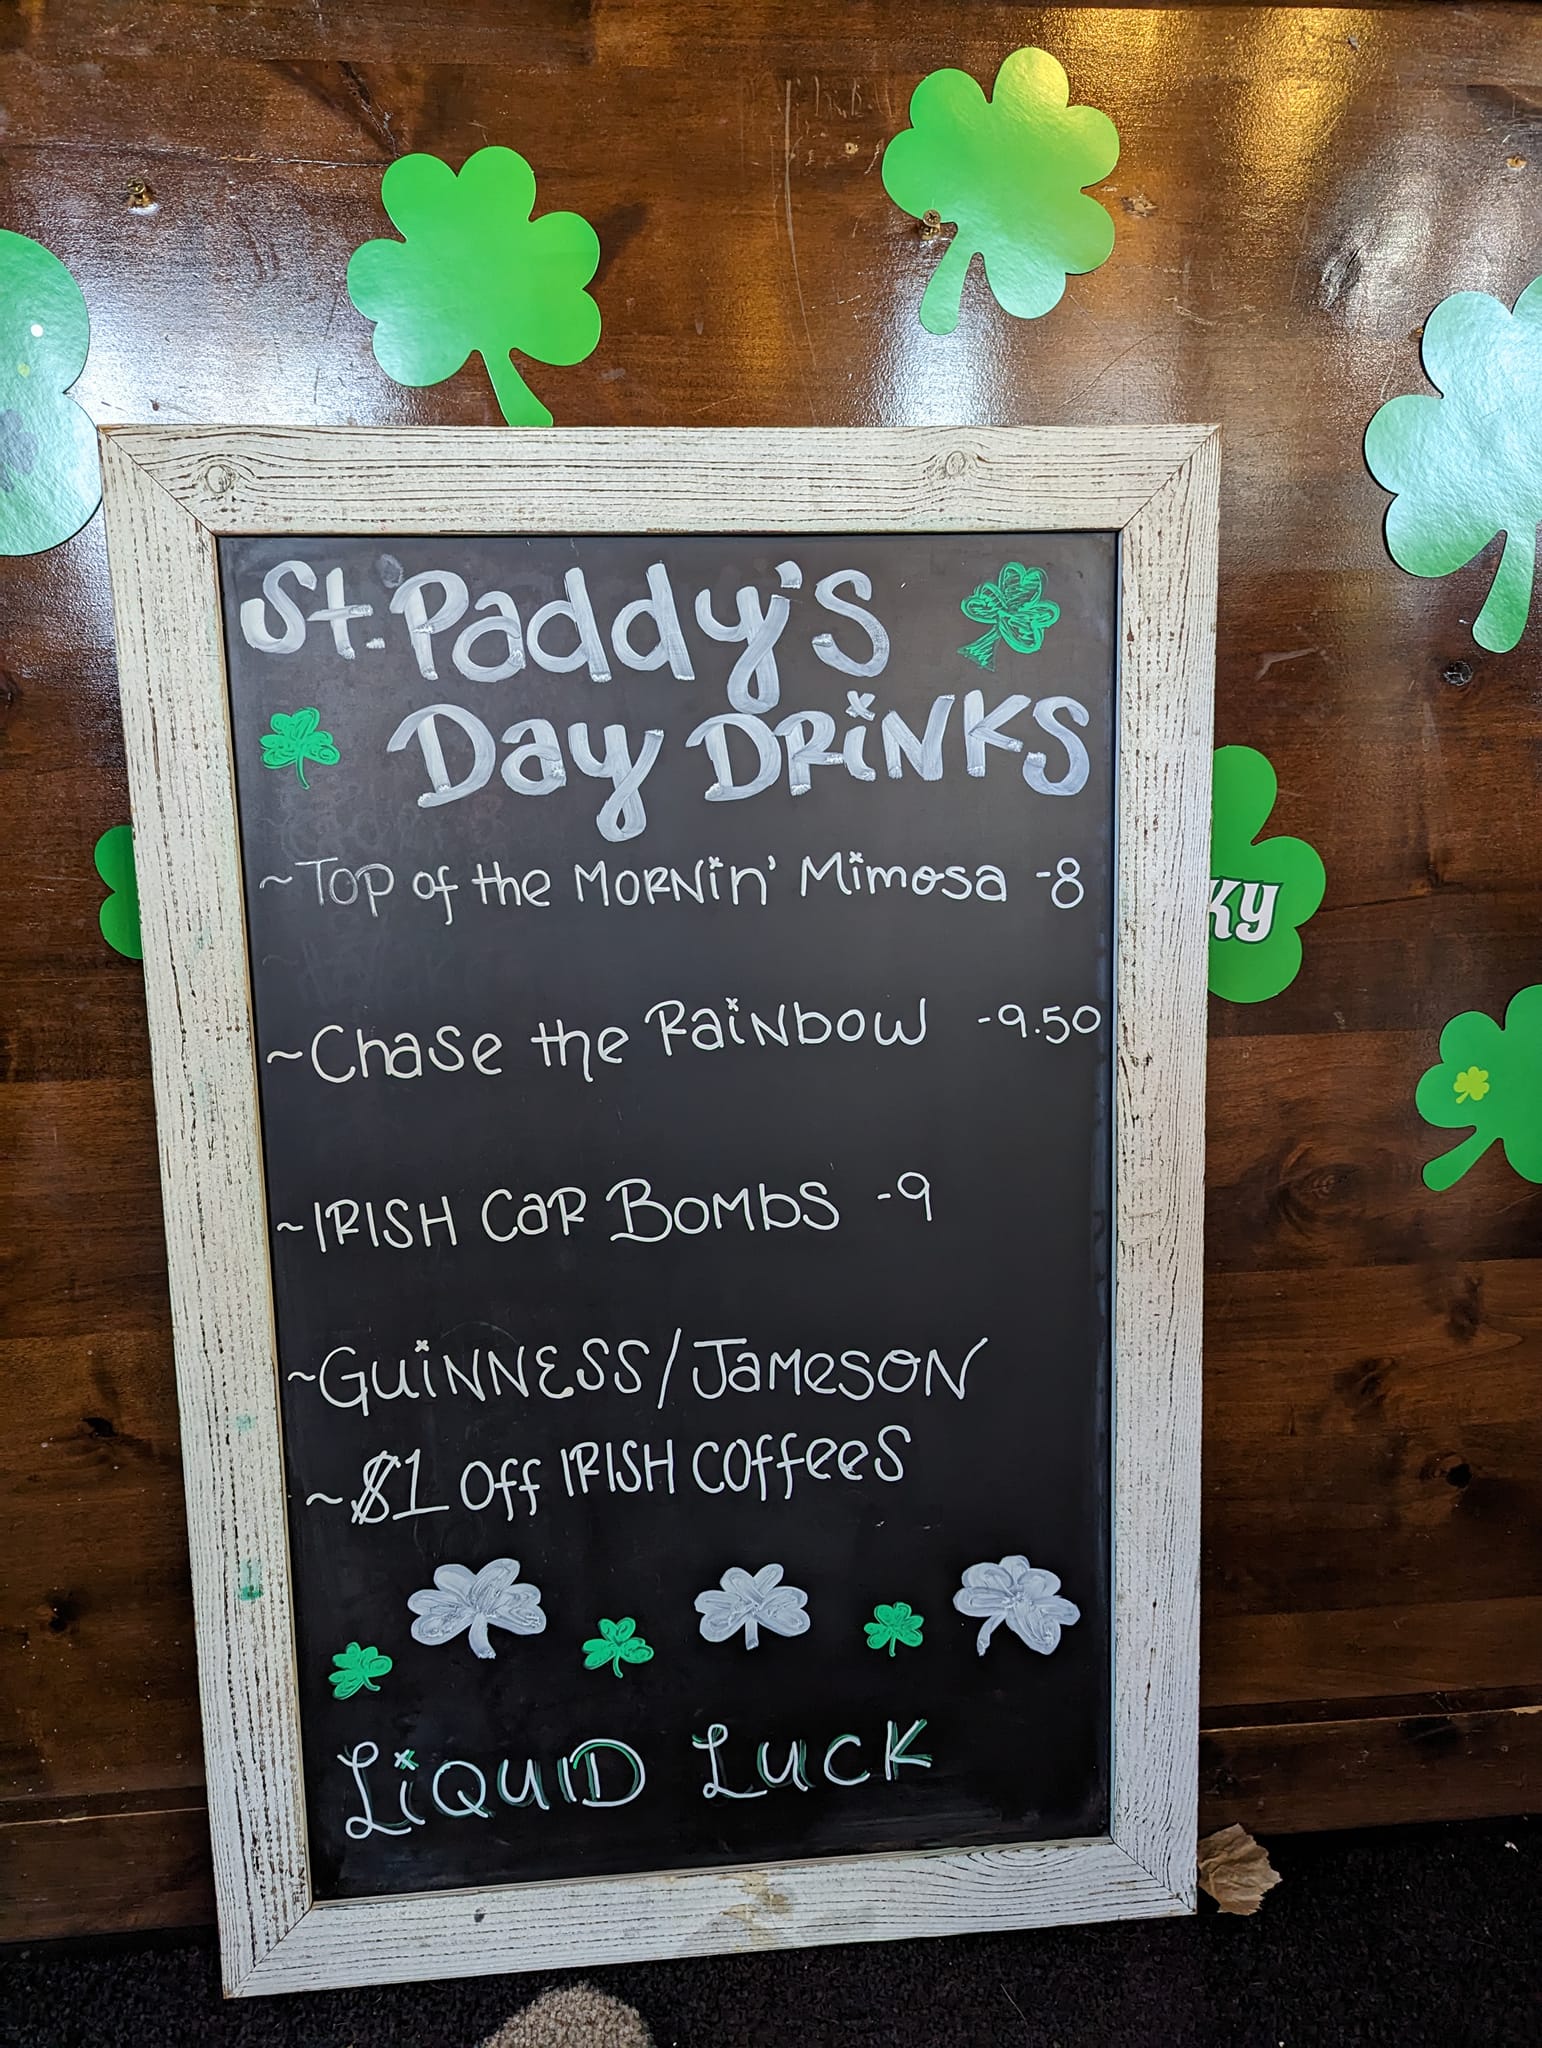 St. Paddy's
Day DRiNKS
~Top of the MORNin' Mimosa -8
~Chase the Rainbow -9.50
~IRISH CaR BoMbS -9
~GuiNNESS/JaMeSON
~$1 Off IRISH COffeeS
LiQUID LUCK
KY